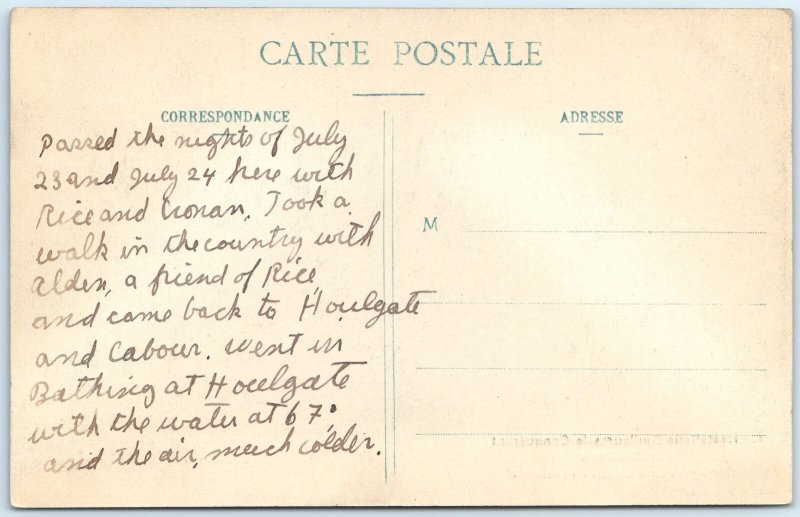 CARTE POSTALE
CORRESPONDANCE
ADRESSE
Passed the nights of July
23 and July 24 here with
Rice and Cronan. Took a
walk in the country with
Alden, a friend of Rice,
and came back to Houlgate
and Cabour. Went in
Bathing at Houlgate
with the water at 67°
and the air, much colder.
M